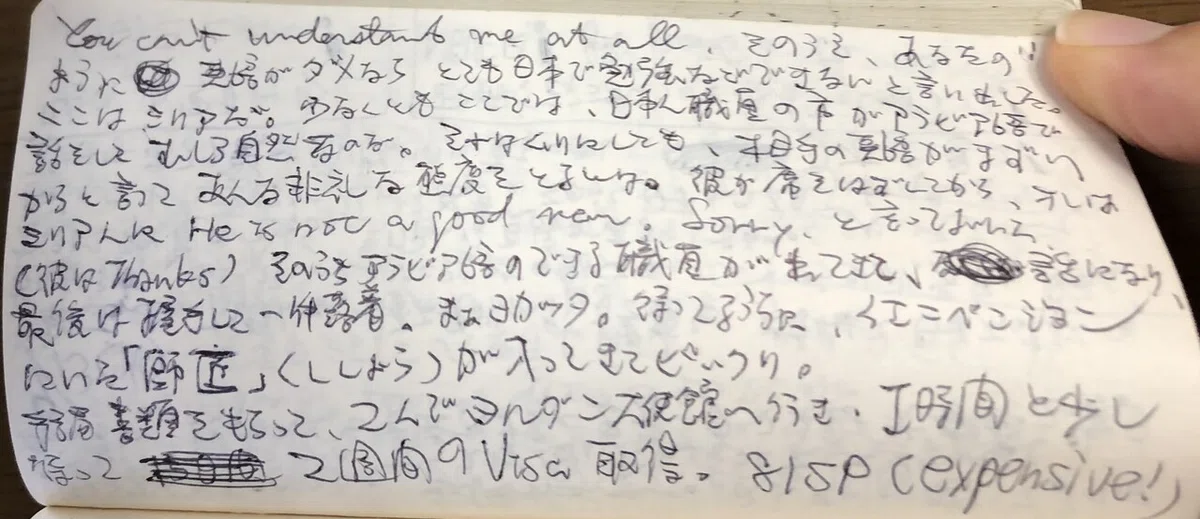 You can't understant me at all、そのうえ、あなたの
ように 英語がダメなら とても日本で勉強などできないと言い出した。
ここはシリアだ。少なくともここでは、日本人職員の方がアラビア語で
話をして むしろ自然なのだ。それはべつにしても、相手の英語がまずい
からと言って あんな非礼な態度をとるとは。彼が席をはずしてから、オレは
シリア人に He is not a good man. Sorry. と言っておいた
(彼は Thanks) そのうちアラビア語のできる職員が出てきて、 話になり、
最後は握手して一件落着。まあヨカッタ。待ってるうちに、イエニペンション
にいた「師匠」(ししょう)が入ってきてビックリ。
結局書類をもらって、ヨルダン大使館へ行き、1時間と少し
待って 2週間のVisa取得。815P (expensive!)